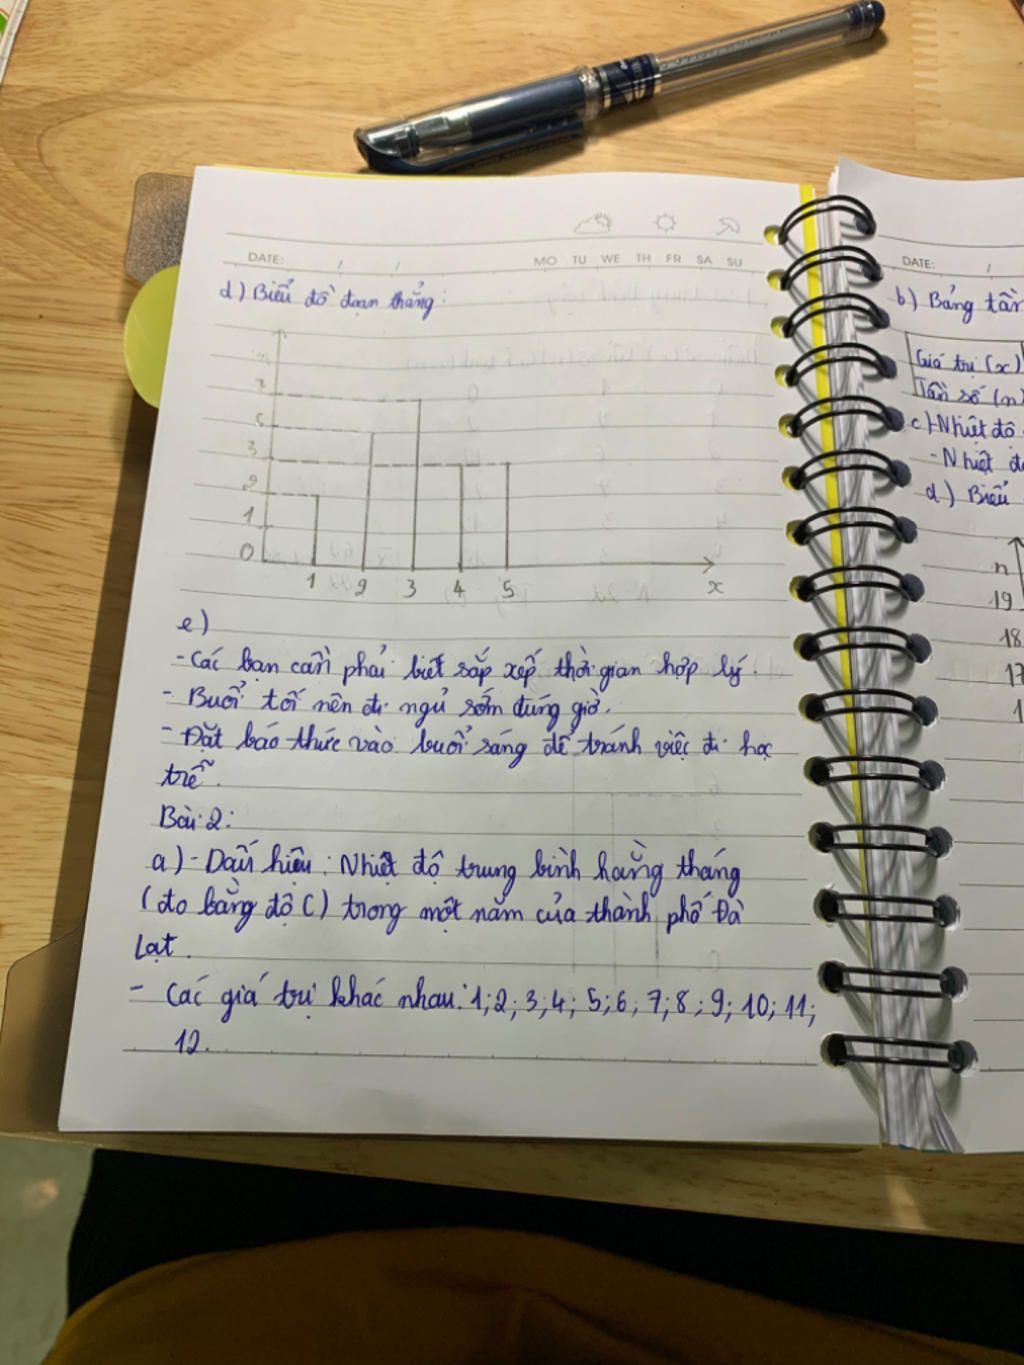 DATE: / /
MO TU WE TH FR SA SU
d) Biểu đồ đoạn thẳng:
n
7
6
3
2
1
0
1 2 3 4 5 x
e)
- Các bạn cần phải biết sắp xếp thời gian hợp lý.
- Buổi tối nên đi ngủ sớm đúng giờ.
- Đặt báo thức vào buổi sáng để tránh việc đi học
trễ.
Bài 2:
a) - Dấu hiệu: Nhiệt độ trung bình hằng tháng
(đo bằng độ C) trong một năm của thành phố Đà
Lạt.
- Các giá trị khác nhau: 1; 2; 3; 4; 5; 6; 7; 8; 9; 10; 11;
12.
DATE: /
b) Bảng tần
Giá trị (x)
Tần số (n)
c) - Nhiệt độ
- Nhiệt độ
d) Biểu
n
19
18
17
1